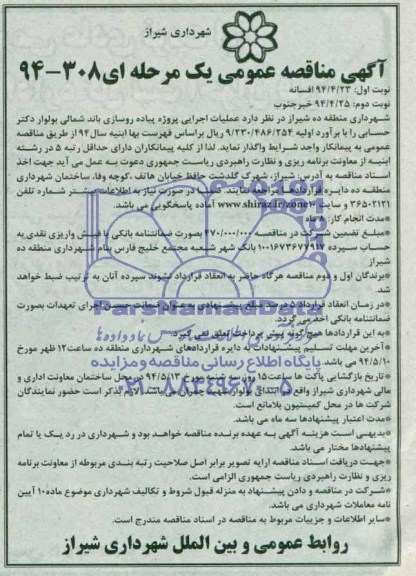 شهرداری شیراز
آگهی مناقصه عمومی یک مرحله ای ۳۰۸-۹۴
نوبت اول: ۹۴/۴/۲۳ افسانه
نوبت دوم: ۹۴/۴/۲۵ خبرجنوب
شهرداری منطقه ده شیراز در نظر دارد عملیات اجرایی پروژه پیاده روسازی باند شمالی بولوار دکتر
حسابی را با برآورد اولیه ۹/۲۳۰/۴۸۶/۲۵۴ ریال براساس فهرست بها ابنیه سال ۹۴ از طریق مناقصه
عمومی به پیمانکار واجد شرایط واگذار نماید. لذا از کلیه پیمانکاران دارای حداقل رتبه ۵ در رشته
ابنیه از معاونت برنامه ریزی و نظارت راهبردی ریاست جمهوری دعوت به عمل می آید جهت اخذ
اسناد مناقصه به آدرس: شیراز، شهرک گلدشت حافظ خیابان هاتف، کوچه وفا، ساختمان شهرداری
منطقه ده دایره قراردادها مراجعه نمایند. ضمنا در صورت نیاز به اطلاعات بیشتر شماره تلفن
۳۶۵۰۲۱۲۱ و سایت www.shiraz.ir/zone10 آماده پاسخگویی می باشد.
*مدت انجام کار: ۸ ماه
*مبلغ تضمین شرکت در مناقصه ۴۷۰/۰۰۰/۰۰۰ بصورت ضمانتنامه بانکی یا فیش واریزی نقدی به
حساب سپرده ۱۰۰۱۶۷۳۶۷۷۹۱۷ بانک شهر شعبه مجتمع خلیج فارس بنام شهرداری منطقه ده
شیراز
*برندگان اول و دوم مناقصه هرگاه حاضر به انعقاد قرارداد نشوند سپرده آنان به ترتیب ضبط خواهد
شد.
*در زمان انعقاد قرارداد ۵ درصد مبلغ پیشنهادی به عنوان ضمانت حسن اجرای تعهدات بصورت
ضمانتنامه بانکی اخذ می گردد.
*به این قراردادها هیچ گونه پیش پرداخت تعلق نمی گیرد.
*آخرین مهلت تسلیم پیشنهادات به دایره قراردادهای شهرداری منطقه ده ساعت ۱۲ ظهر مورخ
۹۴/۵/۱۰ می باشد.
*تاریخ بازگشایی پاکت ها ساعت ۱۵ روز در محل ساختمان معاونت اداری و
مالی شهرداری شیراز واقع در ابتدای بولوار می باشد. لازم بذکر است حضور نمایندگان
شرکت ها در محل کمیسیون بلامانع است.
*مدت اعتبار پیشنهادها سه ماه می باشد.
*بدیهی است هزینه آگهی به عهده برنده مناقصه خواهد بود و شهرداری در رد یک یا تمام
پیشنهادها مختار می باشد.
*جهت دریافت اسناد مناقصه ارایه تصویر برابر اصل صلاحیت رتبه بندی مربوطه از معاونت برنامه
ریزی و نظارت راهبردی ریاست جمهوری الزامی است.
*شرکت در مناقصه و دادن پیشنهاد به منزله قبول شروط و تکالیف شهرداری موضوع ماده ۱۰ آیین
نامه معاملات شهرداری می باشد.
*سایر اطلاعات و جزییات مربوط به مناقصه در اسناد مناقصه مندرج است.
روابط عمومی و بین الملل شهرداری شیراز
ParsNamadData
پایگاه اطلاع رسانی مناقصه و مزایده
۰۲۱-۸۸۳۴۹۶۷۰-۵